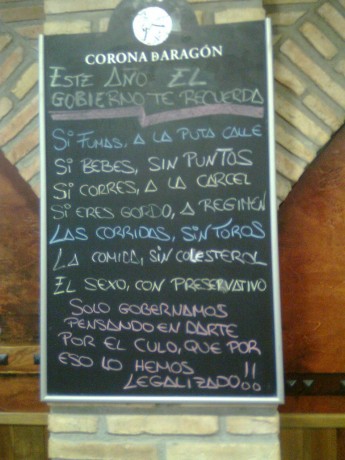 CORONA D ARAGÓN
ESTE AÑO EL
GOBIERNO TE RECUERDA
Si FUMAS, A LA PUTA CALLE
Si BEBES, SIN PUNTOS
Si CORRES, A LA CARCEL
Si ERES GORDO, A REGIMEN
LAS CORRIDAS, SiN TOROS
LA COMIDA, SiN COLESTEROL
EL SEXO, CON PRESERVATIVO
SOLO GOBERNAMOS
PENSANDO EN DARTE
POR EL CULO, QUE POR
ESO LO HEMOS
LEGALIZADO!!